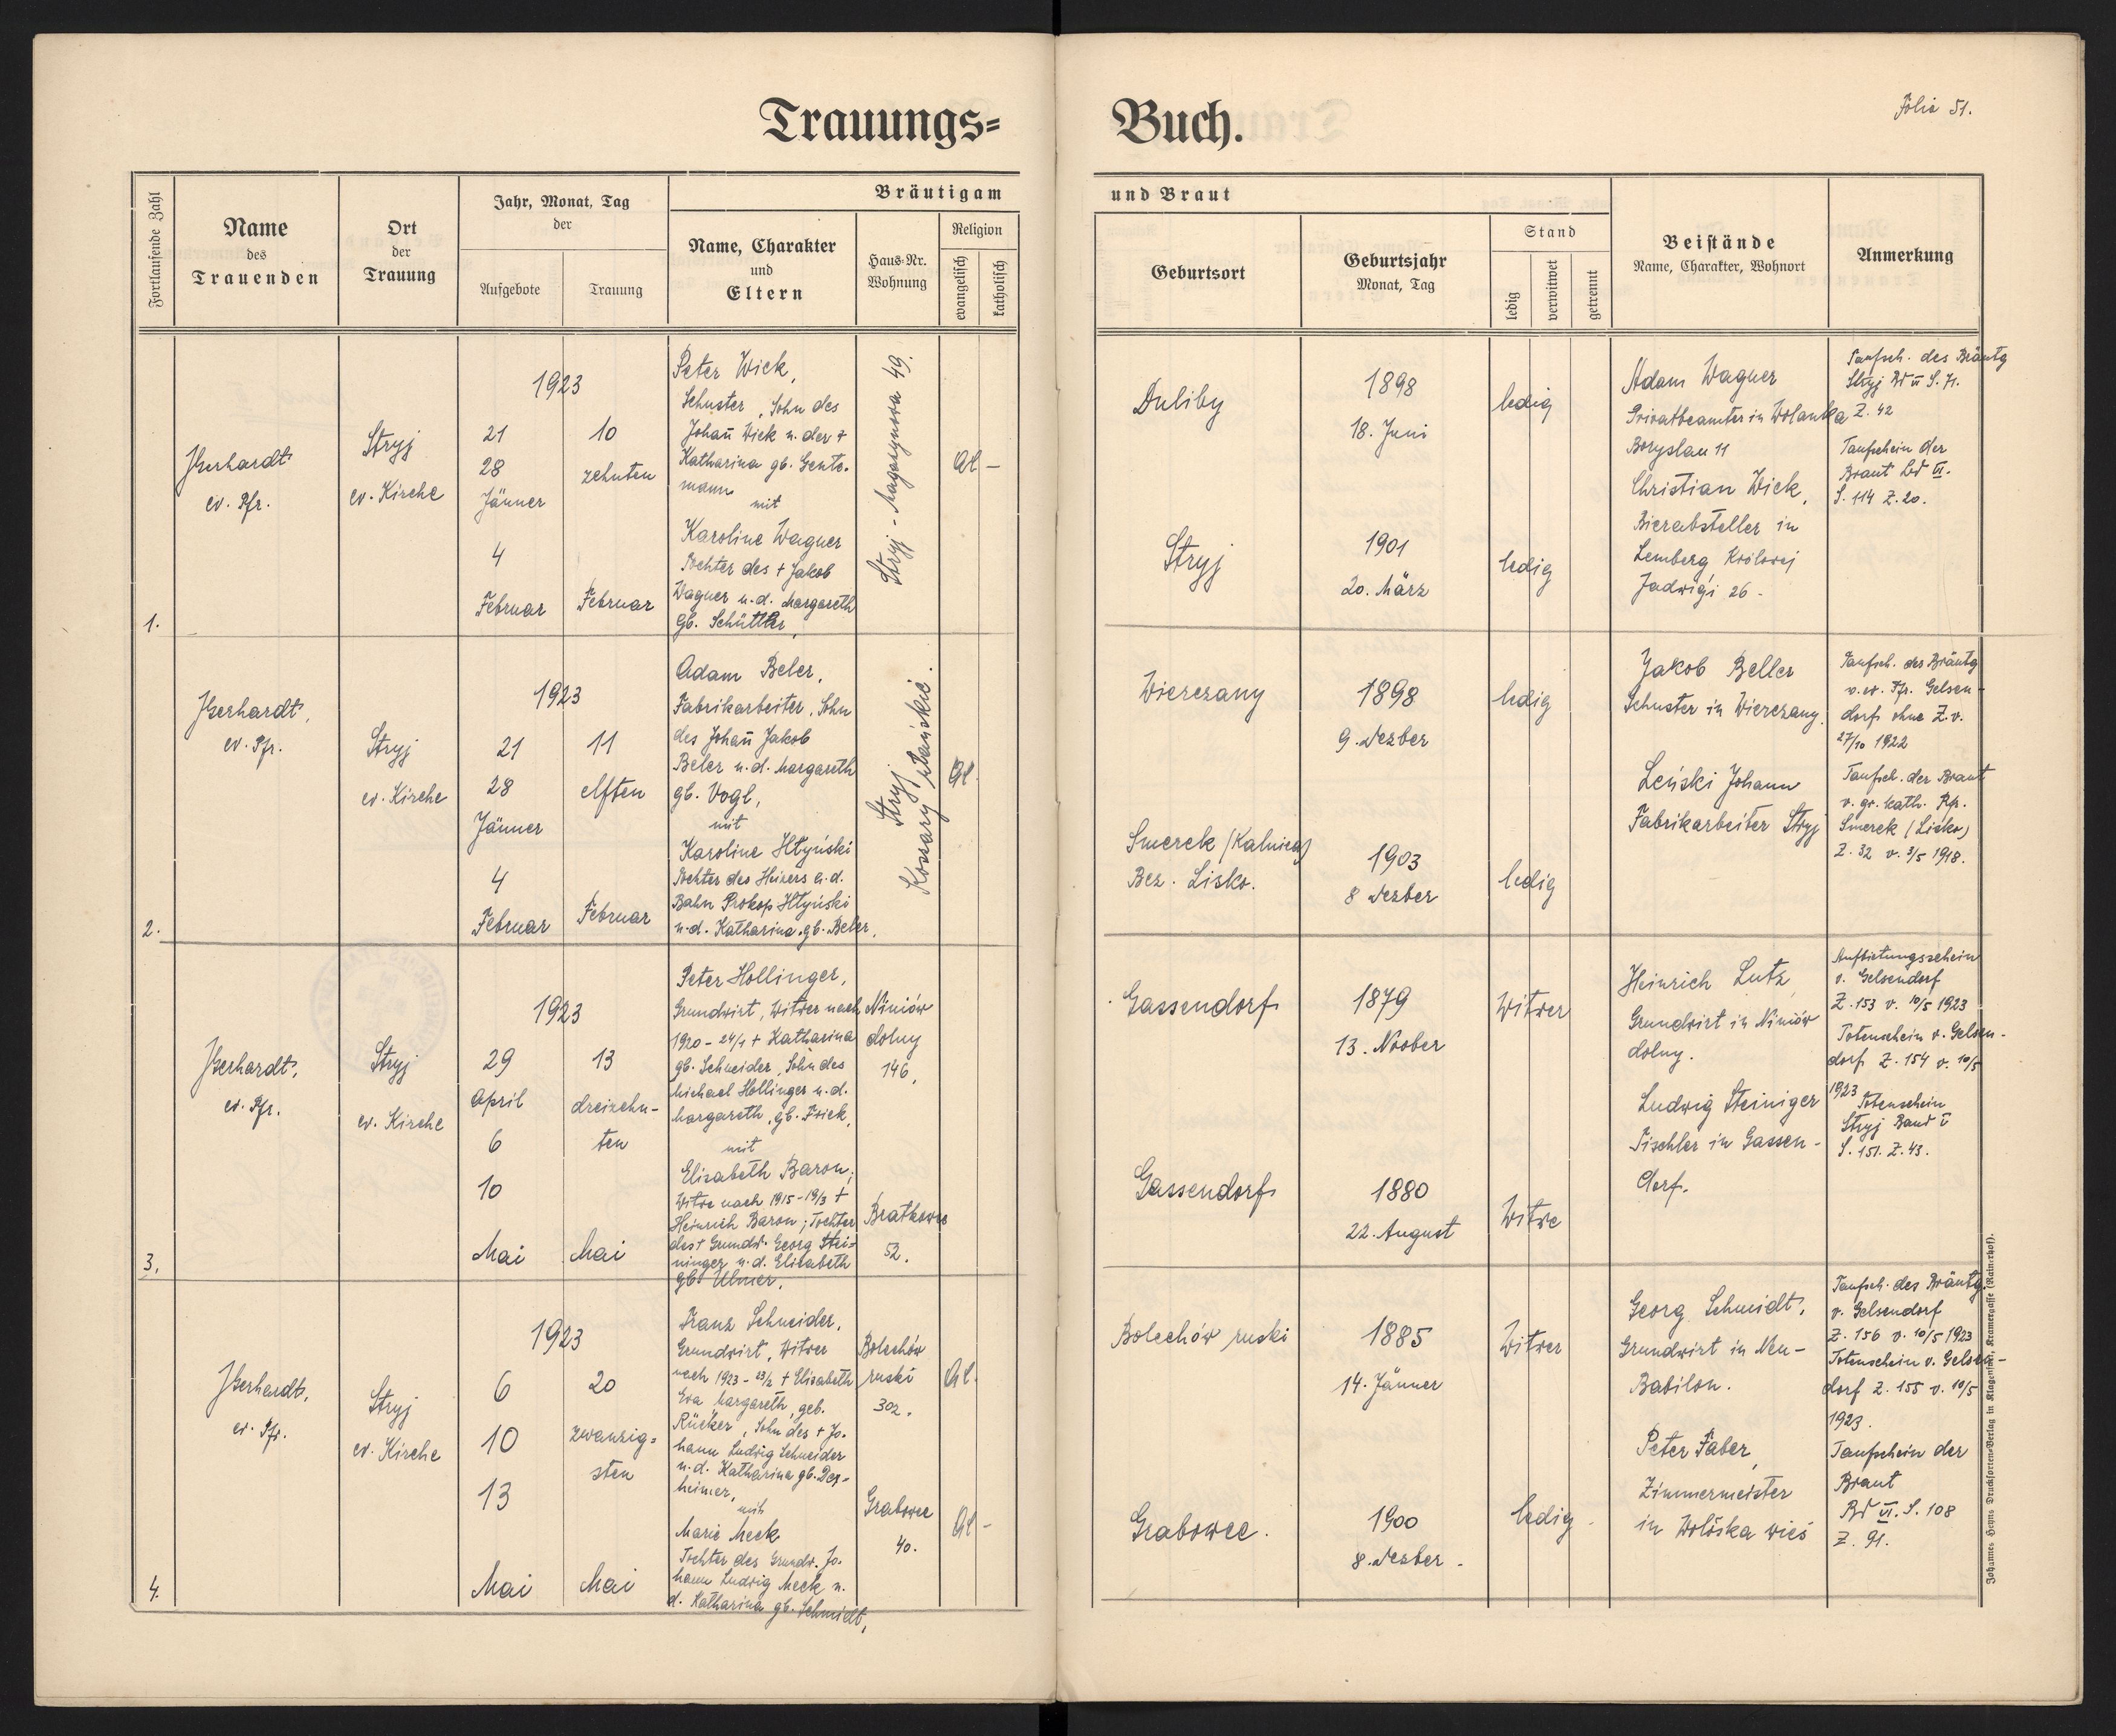 Trauungs=
Buch.
Folio 51.
Fortlaufende Zahl
Name
des
Trauenden
Ort
der
Trauung
Jahr, Monat, Tag
der
Aufgebote
Trauung
Bräutigam
Name, Charakter
und
Eltern
Haus-Nr.
Wohnung
Religion
evangelisch
katholisch
und Braut
Geburtsort
Geburtsjahr
Monat, Tag
Stand
ledig
verwitwet
getrennt
Beistände
Name, Charakter, Wohnort
Anmerkung
1.
ev. Pfr.
Stryj
ev. Kirche
1923
21
28
Jänner
4
Februar
10
zehnten
Februar
Peter Wick,
Schuster, Sohn des
Johañ Wick u. der +
Katharina gb. Gente-
mann
mit
Karoline Wagner
Tochter des + Jakob
Wagner u. d. Margareth
gb. Schüttler,
Stryj - 49.
Duliby
1898
18. Juni
ledig
Stryj
1901
20. März
ledig
Adam Wagner
Privatbeamter in Wolanka
Boryslau 11
Christian Wick,
Bierabsteller in
Lemberg Królowej
Jadwigi 26 -
Taufsch. des Bräutg
Stryj Bd VI S. 71.
Z. 42
Taufschein der
Braut Bd VI.
S. 114 Z. 20.
2.
ev. Pfr.
Stryj
ev. Kirche
1923
21
28
Jänner
4
Februar
11
elften
Februar
Adam Beler,
Fabrikarbeiter, Sohn
des Johañ Jakob
Beler u. d. Margareth
gb. Vogl,
mit
Karoline Hłyński
Tochter des Heizers a. d.
Bahn Prokop Hłyński
u. d. Katharina gb. Beler,
Stryj
Wierczany
1898
9. Dezber
ledig
Smerek (Kalnica)
Bez. Lisko.
1903
8 Dezber
ledig
Jakob Beller
Schuster in Wierczany.
Leński Johann
Fabrikarbeiter Stryj
Taufsch. des Bräutg
v. ev. Pfr. Gelsen-
dorf ohne Z. v.
27/10 1922
Taufsch. der Braut
v. gr. kath. Pfr.
Smerek (Lisko)
Z. 32 v. 3/5 1918.
3.
ev. Pfr.
Stryj
ev. Kirche
1923
29
April
6
10
Mai
13
dreizehn-
ten
Mai
Peter Hollinger,
Grundwirt, Witwer nach
1920 - 24/1 + Katharina
gb. Schneider, Sohn des
Michael Hollinger u. d.
Margareth, gb. Frick,
mit
Elisabeth Baron,
Witwe nach 1915 - 19/3 +
Heinrich Baron; Tochter
des + Grundw. Georg Stei-
ninger u. d. Elisabeth
gb. Ulmer,
Niniów
dolny
146,
Bratkowce
52.
Gassendorf
1879
13. Novber
Witwer
Gassendorf
1880
22. August
Witwe
Heinrich Lutz,
Grundwirt in Niniów
dolny.
Ludwig Steiniger
Tischler in Gassen-
dorf.
Aufbietungsschein
v. Gelsendorf
Z. 153 v. 10/5 1923
Totenschein v. Gelsen-
dorf Z. 154 v. 10/5
1923
Totenschein
Stryj Band V
S. 151. Z. 43.
4.
ev. Pfr.
Stryj
ev. Kirche
1923
6
10
13
Mai
20
zwanzig=
sten
Mai
Franz Schneider,
Grundwirt, Witwer
nach 1923 - 23/2 + Elisabeth
Eva Margareth, geb.
Rücker, Sohn des + Jo-
hann Ludwig Schneider
u. d. Katharina gb. Der-
heimer,
mit
Marie Meck
Tochter des Grundw. Jo-
hann Ludwig Meck u.
d. Katharina gb. Schmidt,
Bolechów
ruski
302.
Grabowce
40.
Bolechów ruski
1885
14. Jänner
Witwer
Grabowce.
1900
8. Dezber -
ledig
Georg Schmidt,
Grundwirt in Neu-
Babilon.
Peter Faber,
Zimmermeister
in Wolóska wieś
Taufsch. des Bräutg.
v. Gelsendorf
Z. 156 v. 10/5 1923
Totenschein v. Gelsen-
dorf Z. 155 v. 10/5
1923.
Taufschein der
Braut
Bd VI. S. 108
Z. 91.